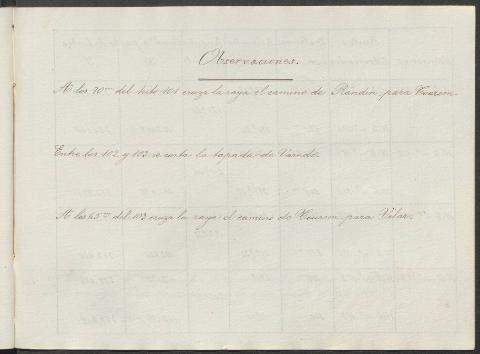 Observaciones.
A los 70 m del hito 101 cruza la raya el camino de Randin para Tourem.
Entre los 102 y 103 se corta la tapada de Varade.
A los 45 m del 103 cruza la raya el camino de Tourem para Vilar.